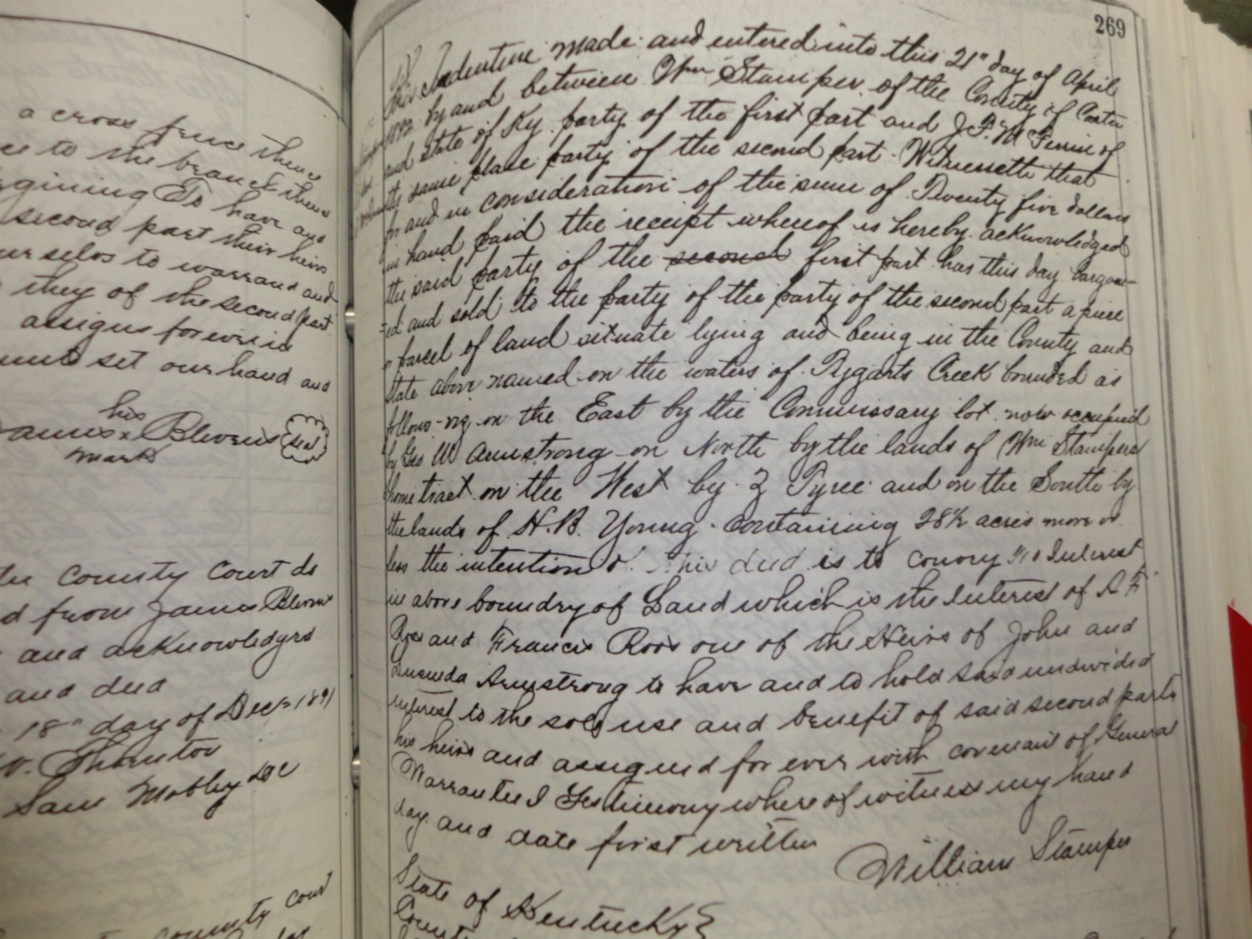 a cross fence thence
ce to the branch thence
gining To have and
second part their heirs
our selvs to warrand and
they of the second part
assigns forever in
set our hand and
his
James x Blevins Seal
mark
County Court do
d from James Blevins
and acknowledged
and deed
18" day of Dec 1891
W. Thornton
Sam Mobley DC
County court
269
This Indenture made and entered into this 21" day of April
1892 by and between Wm Stamper of the County of Carter
and state of Ky. party of the first part and J.F. of
the same place party of the second part. Witnesseth that
for and in consideration of the sum of Twenty five dollars
in hand paid the receipt whereof is hereby acknowledged
the said party of the second first part has this day bargain-
=ed and sold to the party of the party of the second part a piece
or parcel of land situate lying and being in the County and
State above named on the waters of Tygarts Creek bounded as
follows-ng on the East by the Commissary lot now occupied
by Geo W Armstrong on North by the lands of Wm Stampers
home tract on the West by Z Tyree and on the South by
the lands of H.B. Young containing 28½ acres more or
less the intention of this deed is to convey Interest
in above boundry of Land which is the Interest of A F
Ross and Francis Ross one of the Heirs of John and
Lucinda Armstrong to have and to hold said undivided
interest to the sole use and benefit of said second party
his heirs and assigned for ever with covenant of General
Warrantee I Testimony where of witness my hand
day and date first written
William Stamper
State of Kentucky
County